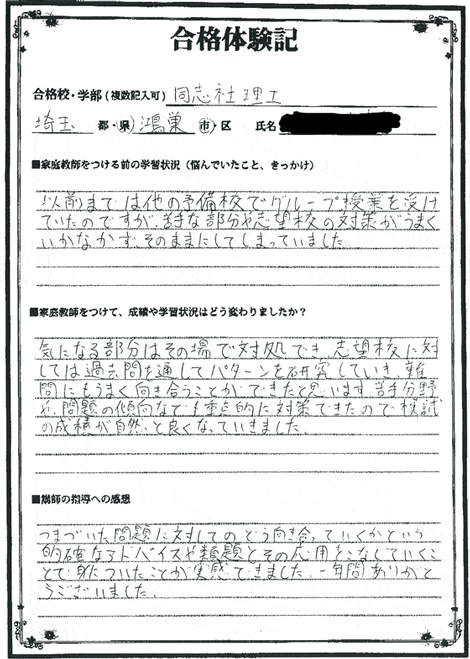 合格体験記
合格校・学部(複数記入可) 同志社 理工
埼玉 都・県 鴻巣 市・区 氏名
■家庭教師をつける前の学習状況(悩んでいたこと、きっかけ)
以前までは他の予備校でグループ授業を受け
ていたのですが、苦手な部分や志望校の対策がうまく
いかなかず、そのままにしてしまっていました。
■家庭教師をつけて、成績や学習状況はどう変わりましたか?
気になる部分はその場で対処でき、志望校に対
しては過去問を通してパターンを研究していき、難
問にもうまく向き合うことができたと思います。苦手分野
や、問題の傾向なども重点的に対策できたので、模試
の成績が自然と良くなっていきました。
■講師の指導への感想
つまづいた問題に対してのどう向き合っていくかという
的確なアドバイスや類題とその応用をこなしていくこ
とで身についたことが実感できました。一年間ありがと
うございました。